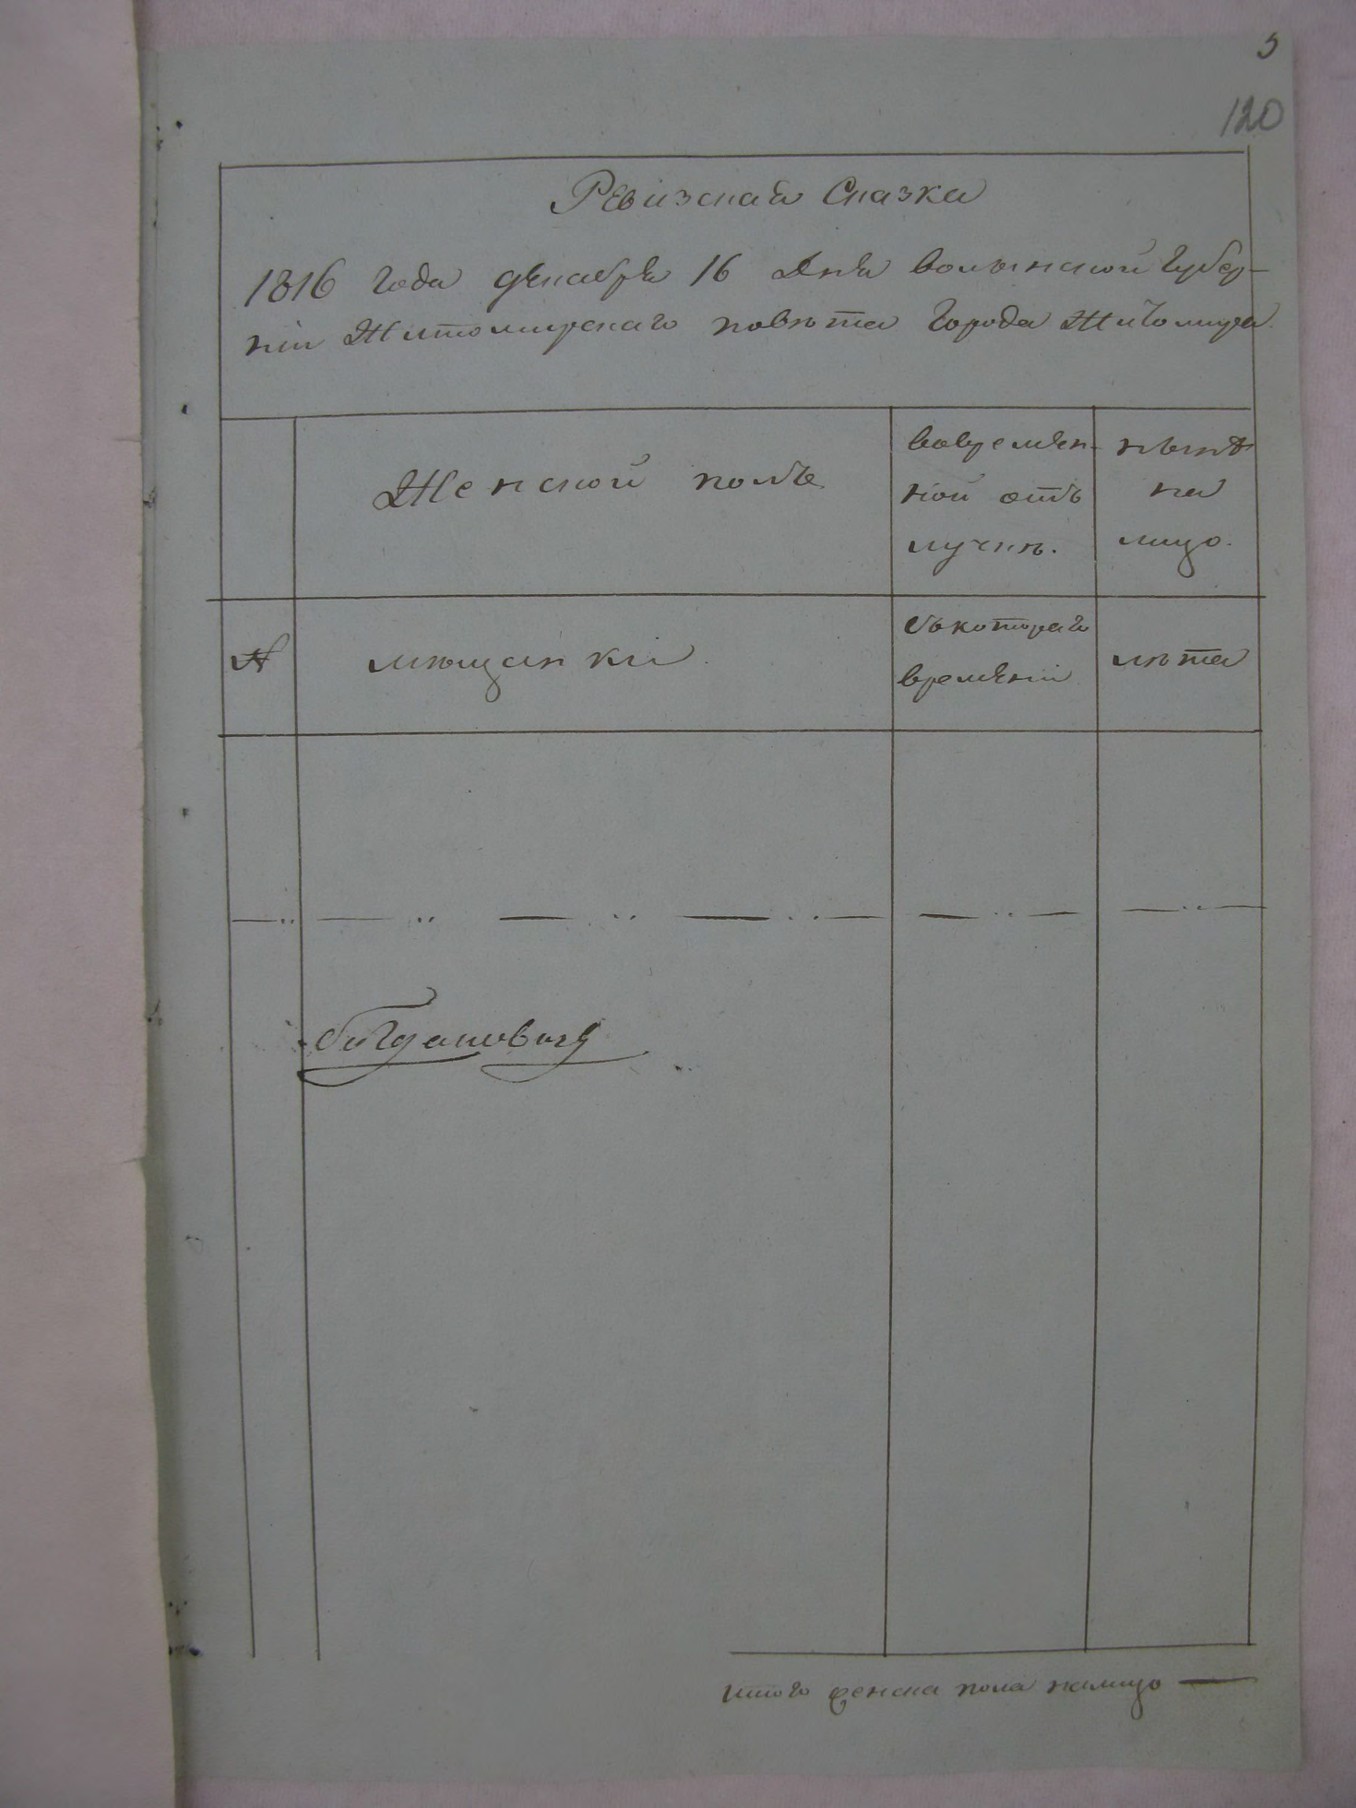 5
120
Ревизская Сказка
1816 года декабря 16 дня волынской губер-
нiи Житомирскаго повѣта города Житомира.
Женской полъ
вовремян-
ной отъ
лучкѣ.
нынѣ
на
лицо.
№
мѣщанки
съкотораго
времяни
лѣта
Богдановичъ
итого женска пола налицо —